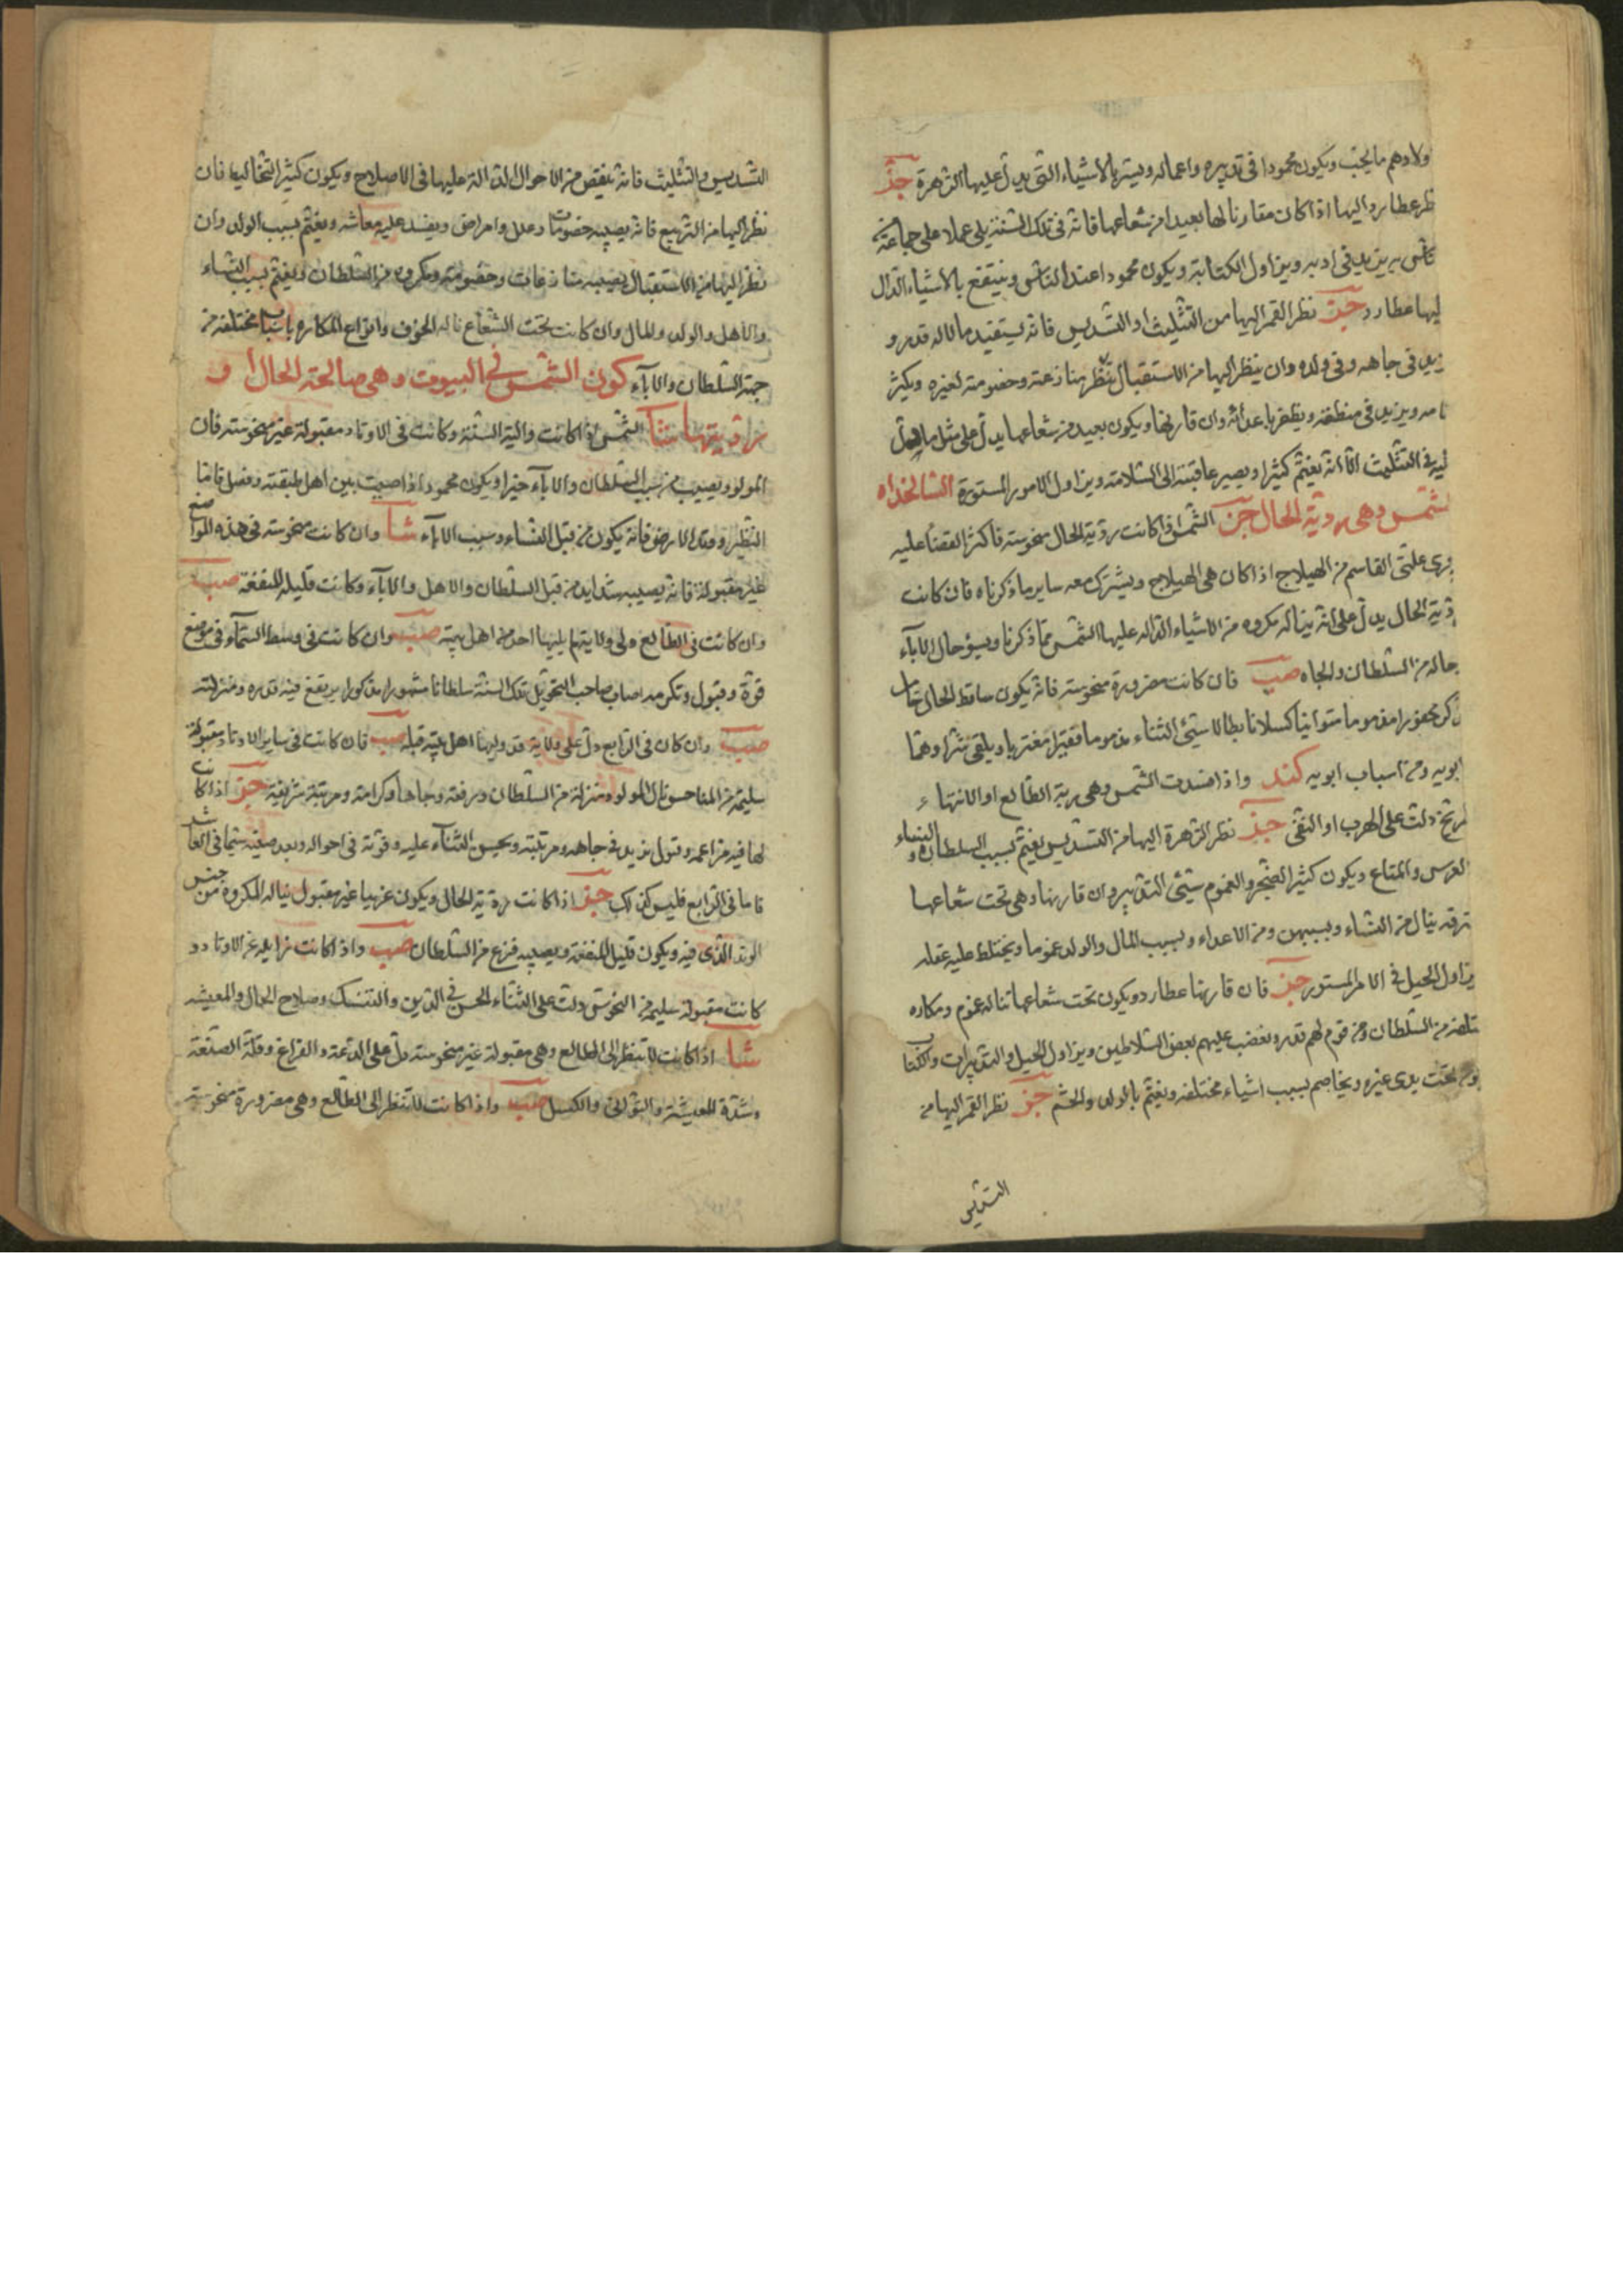 ولادهم ما يحب ويكون محمودا فى تدبيره واعماله ويستر بالاشياء التى يدل عليها الزهرة جز
ظر عطارد اليها اذا كان مقارنا لها بعيدا من شعاعها فانه فى تلك السنة يلى عملا على جماعة
يزيد فى ادبه ويزاول الكتابة ويكون محمودا عند الناس وينتفع بالاشياء الدال
ليها عطارد جز نظر القمر اليها من التثليث او التسديس فانه يستفيد مالا له قدر و
يد فى جاهه وفى ولده وان ينظر اليها من الاستقبال منازعة وخصومة لغيره ويكثر
ويزيد فى منطقه ويظفر باعدائه وان قارنها ويكون بعيد من شعاعها يدل على مثل ما
ليه فى التثليث الا انه يغتم كثيرا ويصير عاقبته الى السلامة ويزاول الامور المستورة السالخداه
لشمس وهى ردية الحال جز الشمس اذا كانت ردية الحال منحوسة فاكثر القضا عليه
القاسم من الهيلاج اذا كان هى الهيلاج ويشترك معه ساير ما ذكرناه فان كانت
دية الحال يدل على انه يناله مكروه من الاشياء الداله عليها الشمس مما ذكرنا ويسؤ حال الاباء
حاله من السلطان والجاه صب فان كانت مضرورة منحوسة فانه يكون ساقط الحال خامل
متوانيا كسلانا بطالا سيئ الثناء مذموما فقيرا مغتربا ويلقى شرا وهما
ابويه ومن اسباب ابويه كند واذا افسدت الشمس وهى ربة الطالع او الانتهاء
لمريخ دلت على الهرب او النفى جز نظر الزهرة اليها من التسديس يغتم بسبب السلطان والنساء و
العرس والمتاع ويكون كثير الضجر والغموم سيئ التدبير وان قارنها وهى تحت شعاعها
ينال من النساء وبسببهن ومن الاعداء وبسبب المال والولد غموما ويختلط عليه عقله
يزاول الحيل فى الامر المستور جز فان قارنها عطارد ويكون تحت شعاعها تناله غموم ومكاره
من السلطان ومن قوم لهم قدر وبغضب عليهم بعض السلاطين ويزاول الحيل والتدبيرات والكتاب
تحت يدى غيره ويخاصم بسبب اشياء مختلفة ويغتم بالولد والحشم جز نظر القمر اليها من
التسديس
التسديس والتثليث فانه ينقص من الاحوال الدالة عليها فى الاصلاح ويكون كثير التخاليط فان
نظر اليها من التربيع فانه يصيبه خصومات وعلل وامراض ويفسد عليه معاشه ويغتم بسبب الولد وان
نظر اليها من الاستقبال يصيبه منازعات وخصومة ومكروه من السلطان ويغتم بسبب النساء
والاهل والولد والمال وان كانت تحت الشعاع ناله الخوف وانواع المكاره باسباب مختلفة من
جهة السلطان والاباء كون الشمس فى البيوت وهى صالحة الحال او
رديتها شا الشمس اذا كانت والية السنة وكانت فى الاوتاد مقبولة غير منحوسة فان
المولود يصيب من سبب السلطان والاباء خيرا ويكون محمودا ذا صيت بين اهل طبقته وفضل فاما
النظر ووتد الارض فانه يكون من قبل النساء وسبب الاباء شا وان كانت منحوسة فى هذه المواضع
غير مقبولة فانه يصيبه شدايد من قبل السلطان والاهل والاباء وكانت قليلة المنفعة صب
وان كانت فى الطالع ولى ولاية لم يليها احد من اهل بيته صب وان كانت فى وسط السماء فى موضع
قوة وقبول وتكرمه اصاب صاحب التحويل تلك السنة سلطانا مشهورا مذكورا يرتفع فيه قدره ومنزلته
صب وان كان فى الرابع دل على ولاية قد وليها اهل بيته قبله صب فان كانت فى ساير الاوتاد مقبولة
سليمة من المناحس نال المولود منزلة من السلطان ورفعة وجاها وكرامة ومرتبة شريفة جز اذا كانت
لها فيه مزاعمه وقبول يزيد فى جاهه ومرتبته ويحسن الثناء عليه وقوته فى احواله وبعد صيته سيما فى العاشر
فاما فى الرابع فليس كذلك جز اذا كانت ردية الحال ويكون غريبا غير مقبول يناله المكروه من جنس
الوتد الذى فيه ويكون قليل المنفعة ويصيبه فزع من السلطان صب واذا كانت زايلة عن الاوتاد و
كانت مقبولة سليمة من النحوس دلت على الثناء الحسن فى الدين والتنسك وصلاح الحال والمعيشة
شا اذا كانت لا تنظر الى الطالع وهى مقبولة غير منحوسة دل على الدعة والفراغ وقلة الصنعة
وشدة المعيشة والتوانى والكسل صب واذا كانت لا تنظر الى الطالع وهى مضرورة منحوسة